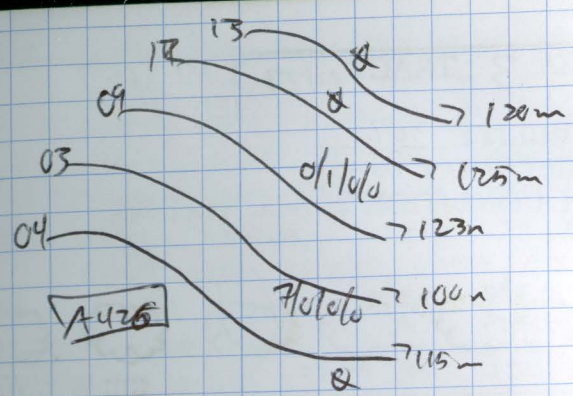 13 Ø 120m
Ø 125m
09 0/1/0/0 123m
03 7/0/0/0 100m
04 Ø 115m